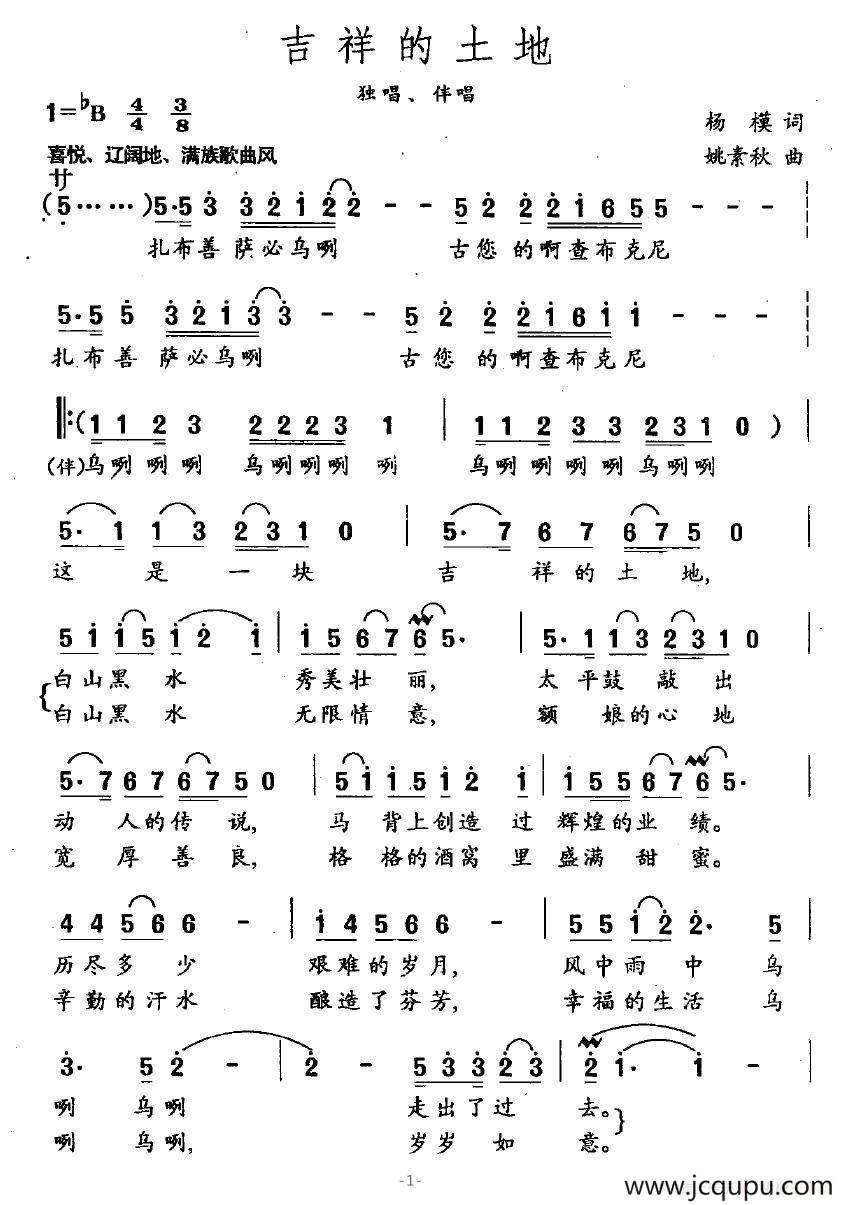 吉祥的土地
独唱、伴唱
1=♭B 4/4 3/8
杨 模 词
喜悦、辽阔地、满族歌曲风
姚素秋 曲
サ
(5……)5·5 3 3 2 1 2 2 - - 5 2 2 2 1 6 5 5 - - -
扎布善 萨必乌咧 古您的啊查布克尼
5·5 5 3 2 1 3 3 - - 5 2 2 2 1 6 1 1 - - -
扎布善 萨必乌咧 古您的啊查布克尼
‖:(1 1 2 3 2 2 2 3 1 | 1 1 2 3 3 2 3 1 0 ) |
(伴)乌咧咧咧 乌咧咧咧 咧 乌咧咧咧咧乌咧咧
5· 1 1 3 2 3 1 0 | 5· 7 6 7 6 7 5 0 |
这 是 一 块 吉 祥的土 地,
5 1 1 5 1 2 1 | 1 5 6 7 6 5· | 5· 1 1 3 2 3 1 0 |
白山黑 水 秀美壮 丽, 太 平鼓 敲 出
白山黑 水 无限情 意, 额 娘的心 地
5· 7 6 7 6 7 5 0 | 5 1 1 5 1 2 1 | 1 5 5 6 7 6 5· |
动 人的传 说, 马 背上创造 过 辉煌的业 绩。
宽 厚善 良, 格 格的酒窝 里 盛满 甜 蜜。
4 4 5 6 6 - | 1 4 5 6 6 - | 5 5 1 2 2· 5 |
历尽多 少 艰难的岁月, 风中雨 中 乌
辛勤的汗水 酿造了芬芳, 幸福的生活 乌
3· 5 2 - | 2 - 5 3 3 2 3 | 2 1· 1 - |
咧 乌咧 走出了过 去。
咧 乌咧, 岁岁 如 意。
-1-
www.jcqupu.com